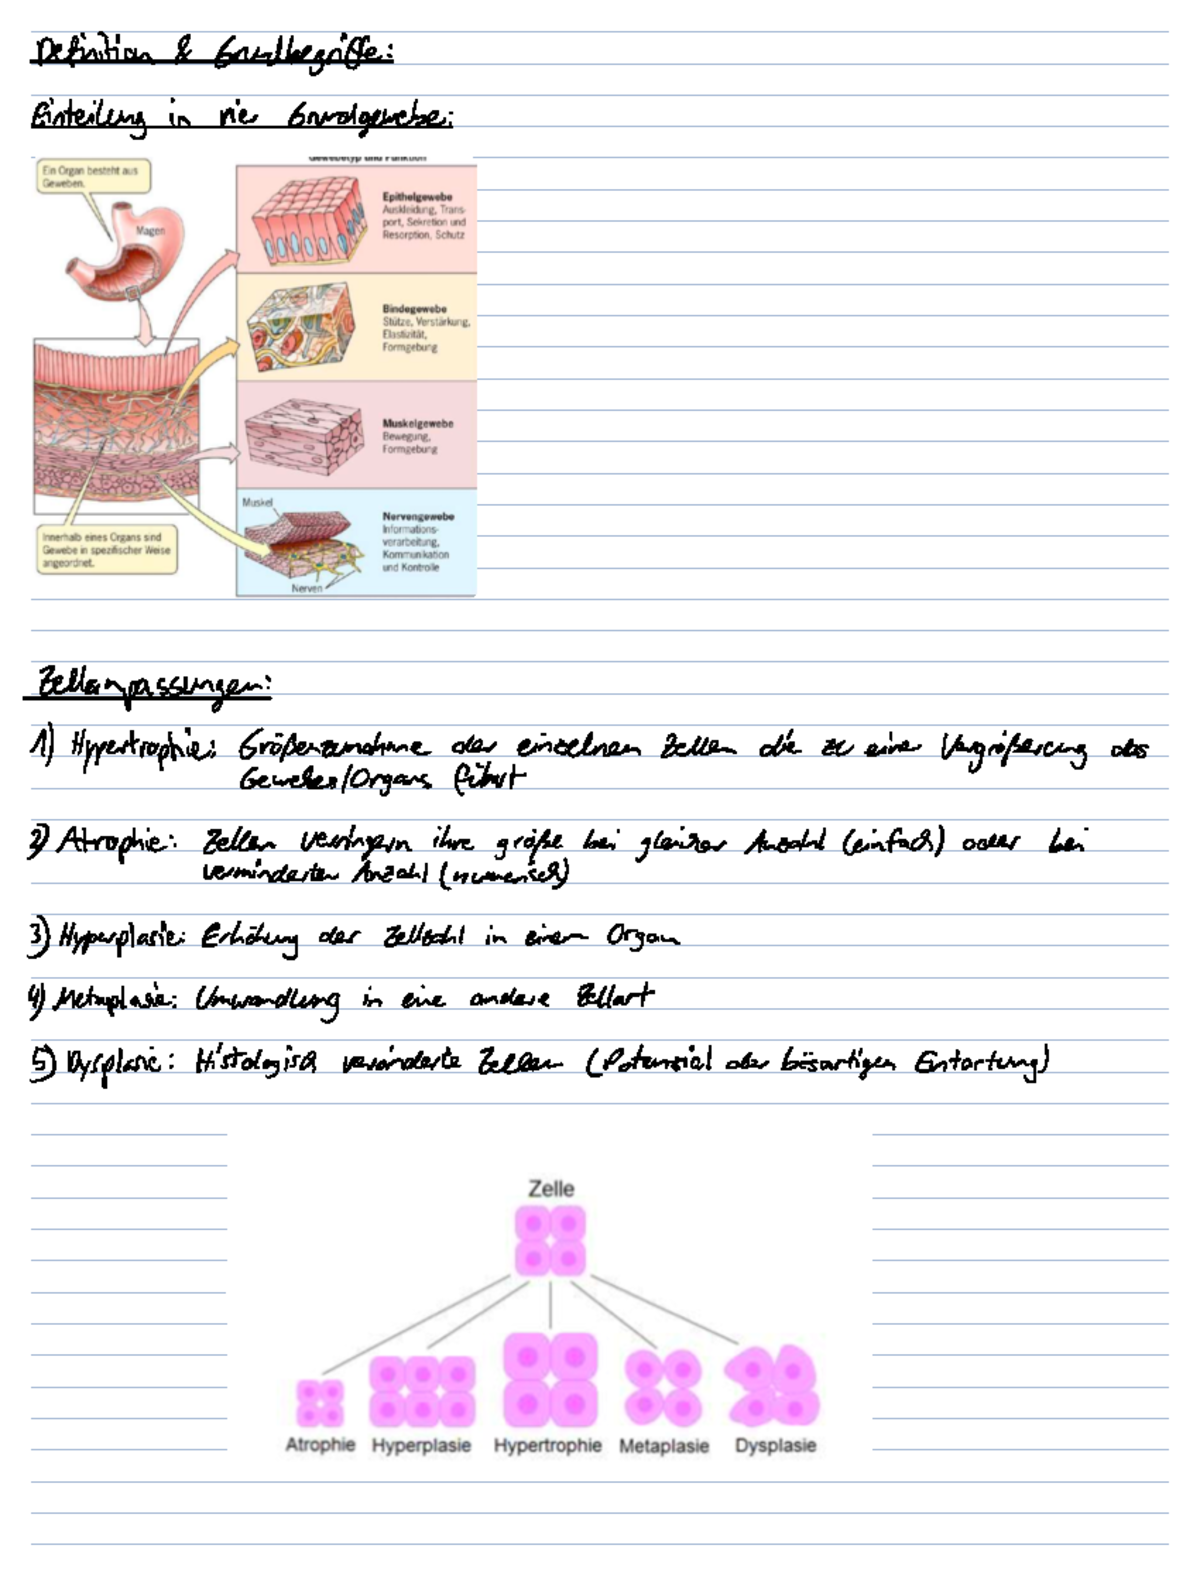 Definition & Grundbegriffe:
Einteilung in vier Grundgewebe:
Gewebetyp und Funktion
Ein Organ besteht aus
Geweben.
Magen
Epithelgewebe
Auskleidung, Trans-
port, Sekretion und
Resorption, Schutz
Bindegewebe
Stütze, Verstärkung,
Elastizität,
Formgebung
Muskelgewebe
Bewegung,
Formgebung
Muskel
Nervengewebe
Informations-
verarbeitung,
Kommunikation
und Kontrolle
Nerven
Innerhalb eines Organs sind
Gewebe in spezifischer Weise
angeordnet.
Zellanpassungen:
1) Hypertrophie: Größenzunahme der einzelnen Zellen die zu einer Vergrößerung des
Gewebes/Organs führt
2) Atrophie: Zellen verringern ihre größe bei gleicher Anzahl (einfach) oder bei
verminderter Anzahl (numerisch)
3) Hyperplasie: Erhöhung der Zellzahl in einem Organ
4) Metaplasie: Umwandlung in eine andere Zellart
5) Dysplasie: Histologisch veränderte Zellen (Potenzial der bösartigen Entartung)
Zelle
Atrophie Hyperplasie Hypertrophie Metaplasie Dysplasie